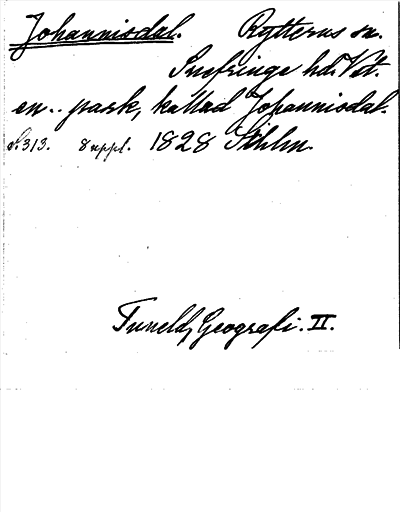 Johannisdal. Rytterns sn.
Snefringe hd. Vst.
en.. park, kallad Johannisdal.
S. 313. 8 uppl. 1828 Sthlm.
Tuneld, Geografi. II.